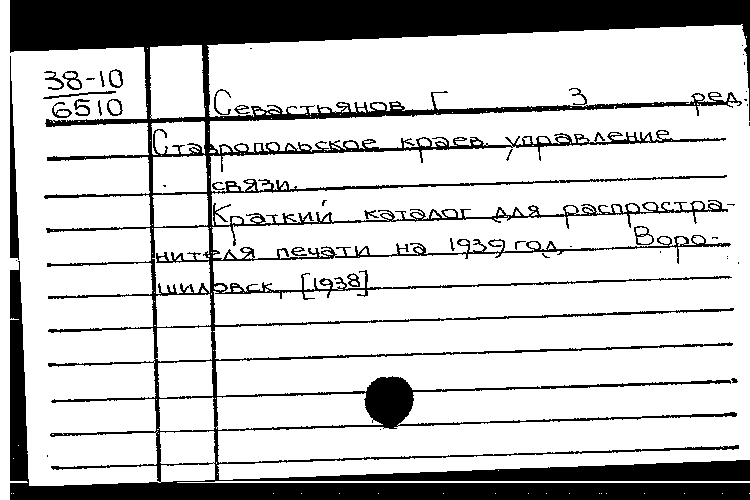 38-10
6510
Севастьянов Г З ред.
Ставропольское краев. управление
связи.
Краткий каталог для распростра-
нителя печати на 1939 год. Воро-
шиловск, [1938]